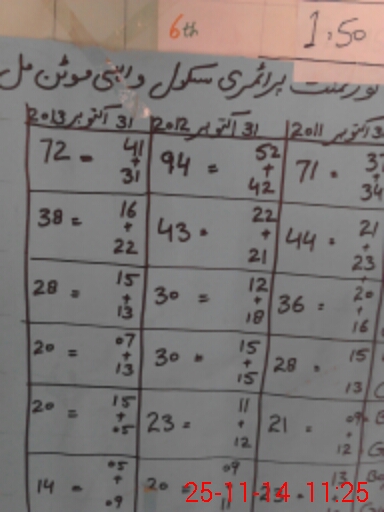 6th
1.50
گورنمنٹ پرائمری سکول واہی موٹن مل
31 اکتوبر 2011 31 اکتوبر 2012 31 اکتوبر 2013
71 = 37 + 34 94 = 52 + 42 72 = 41 + 31
44 = 21 + 23 43 = 22 + 21 38 = 16 + 22
36 = 20 + 16 30 = 12 + 18 28 = 15 + 13
28 = 15 13 30 = 15 + 15 20 = 07 + 13
21 = 09 + 12 23 = 11 + 12 20 = 15 + 05
23 = 13 20 = 09 11 14 = 05 + 09
25-11-14 11:25